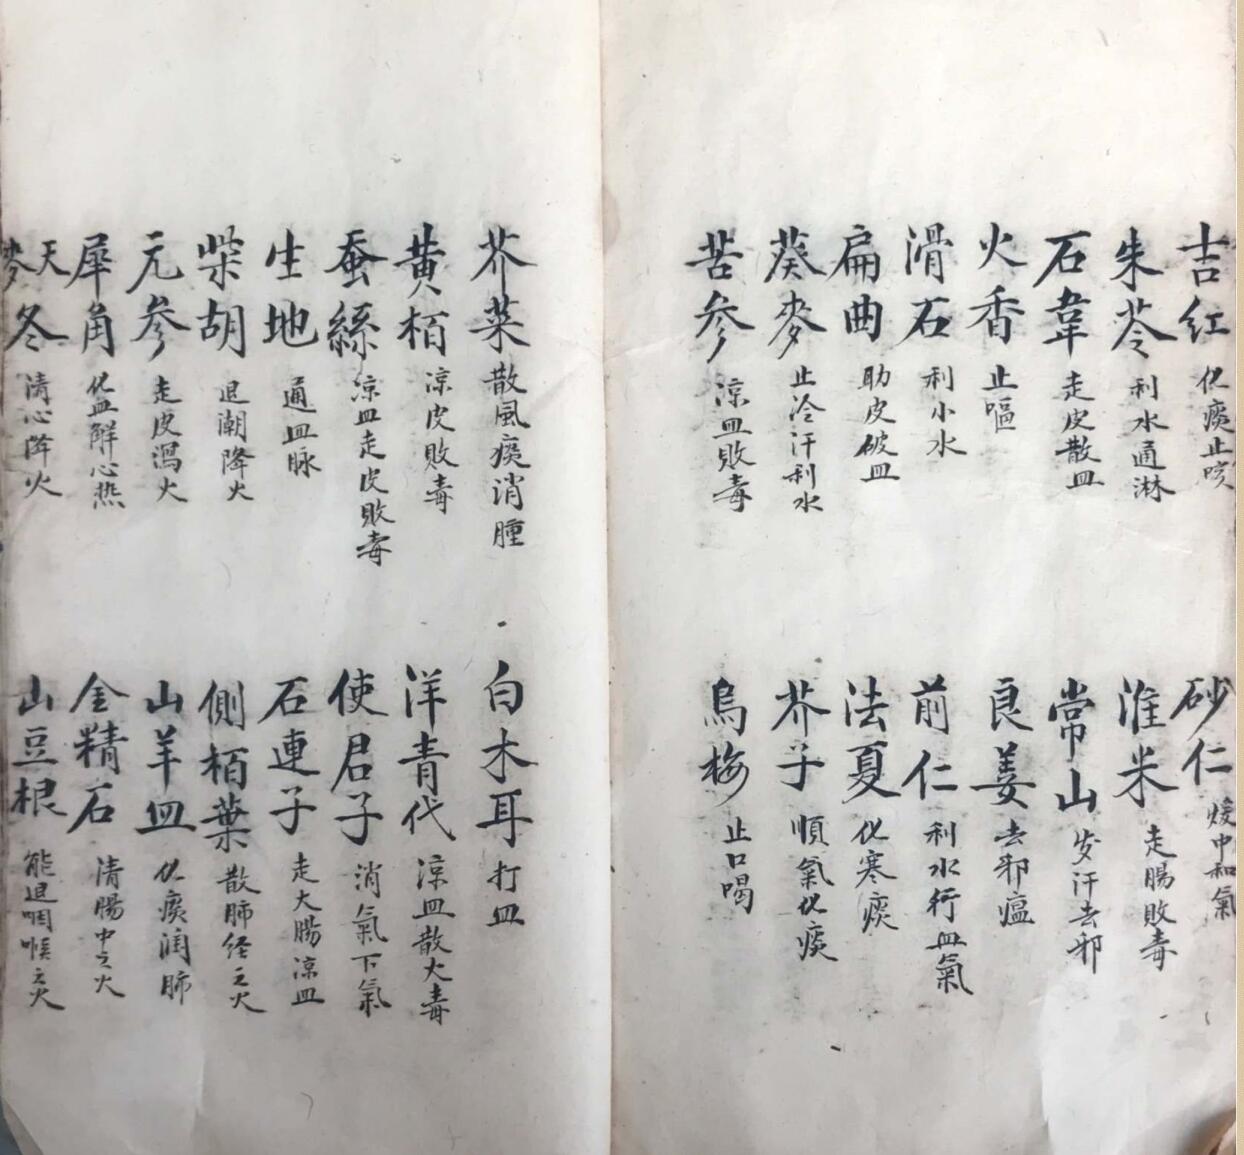 吉红 化痰止咳
朱苓 利水通淋
石韋 走皮散血
火香 止嘔
滑石 利小水
扁曲 助皮破血
葵麥 止冷汗利水
苦參 凉血敗毒
砂仁 煖中和氣
淮米 走腸敗毒
常山 发汗去邪
良姜 去邪瘟
前仁 利水行血氣
法夏 化寒痰
芥子 順氣化痰
烏梅 止口喝
芥菜 散風痰消腫
黄栢 凉皮敗毒
蚕絲 凉血走皮敗毒
生地 通血脉
柴胡 退潮降火
元參 走皮瀉火
犀角 化血解心热
天麥冬 清心降火
白木耳 打血
洋青代 凉血散火毒
使君子 消氣下氣
石連子 走大腸凉血
側栢葉 散肺经之火
山羊血 化痰润肺
金精石 清腸中之火
山豆根 能退咽喉之火